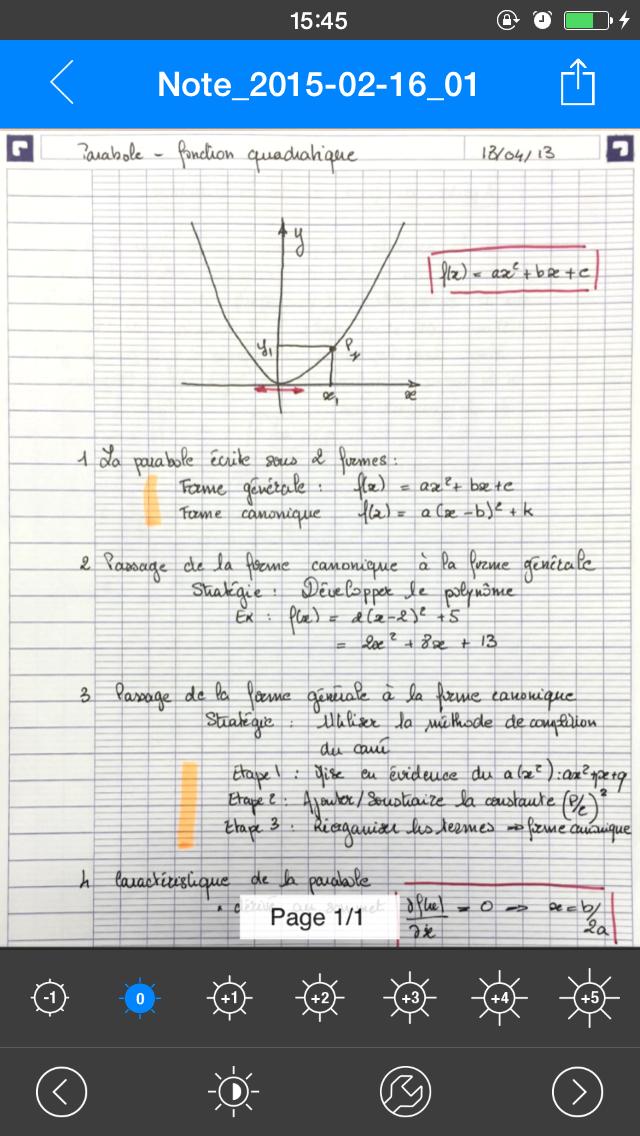 15:45
Note_2015-02-16_01
Parabole - fonction quadratique 18/04/13
y
f(x) = ax² + bx + c
y₁ P
x₁ x
1 La parabole écrite sous 2 formes :
Forme générale : f(x) = ax² + bx + c
Forme canonique f(x) = a(x-b)² + k
2 Passage de la forme canonique à la forme générale
Stratégie : Développer le polynôme
Ex : f(x) = 2(x-2)² + 5
= 2x² + 8x + 13
3 Passage de la forme générale à la forme canonique
Stratégie : Utiliser la méthode de complition
du carré
Etape 1 : Mise en évidence du a(x²) : ax²+px+q
Etape 2 : Ajouter/Soustraire la constante (P/2)²
Etape 3 : Réorganiser les termes ⇒ forme canonique
4 Caractéristique de la parabole
∂f(x)/∂x = 0 ⇒ x = b/2a
Page 1/1
-1 0 +1 +2 +3 +4 +5